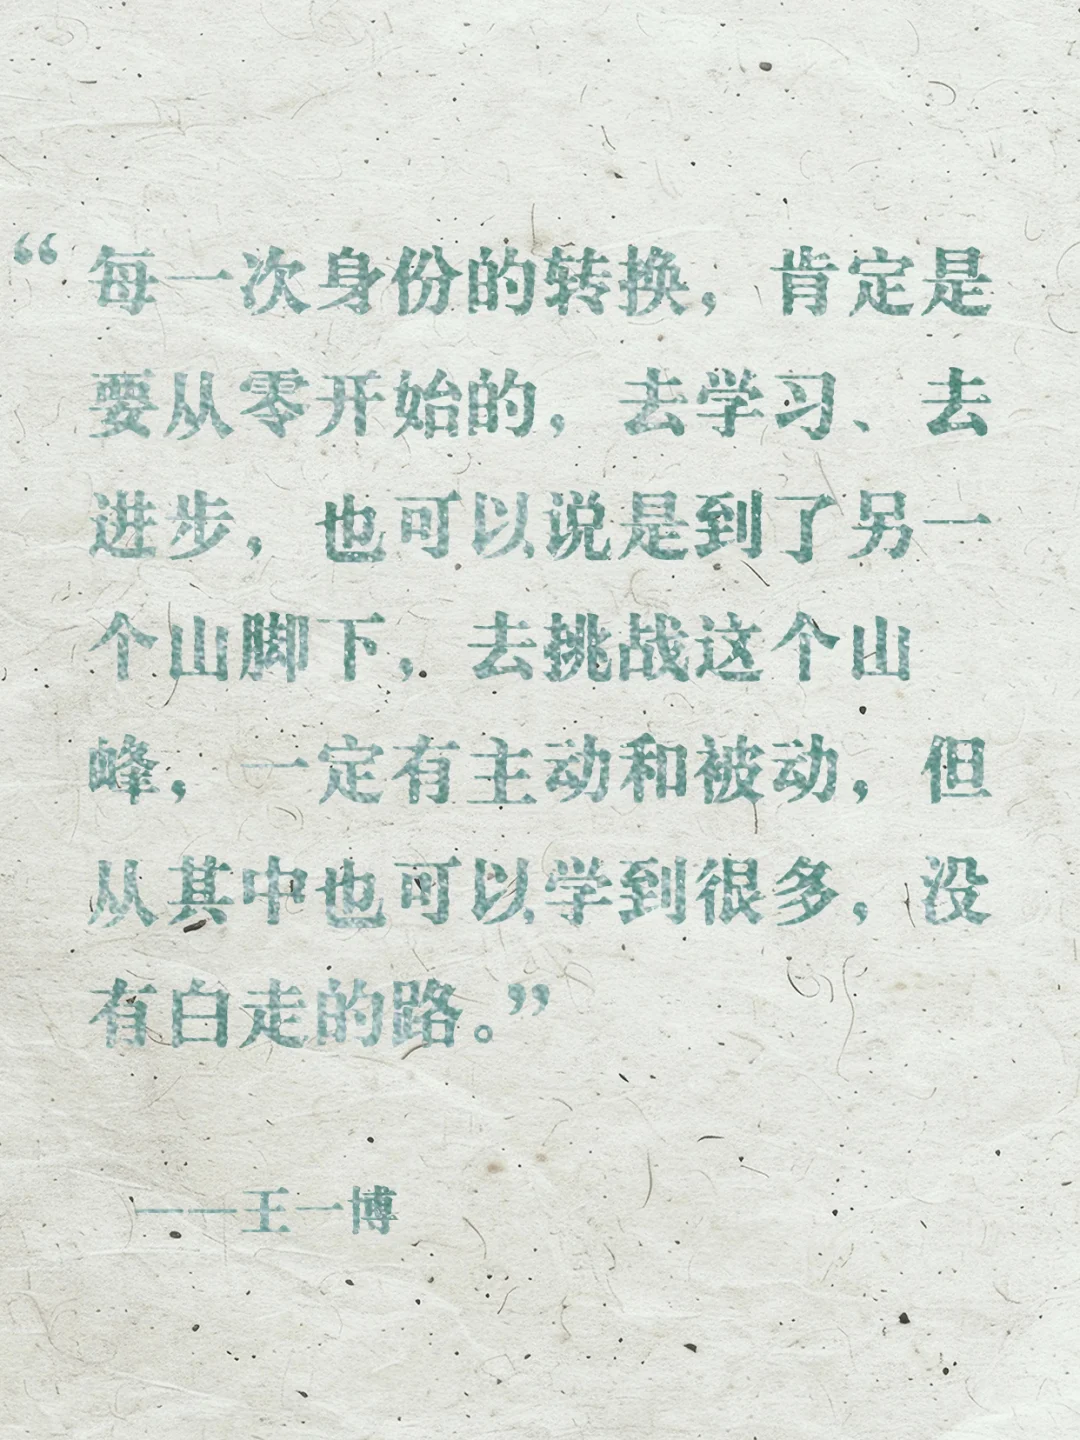 “每一次身份的转换，肯定是
要从零开始的，去学习、去
进步，也可以说是到了另一
个山脚下，去挑战这个山
峰，一定有主动和被动，但
从其中也可以学到很多，没
有白走的路。”
——王一博